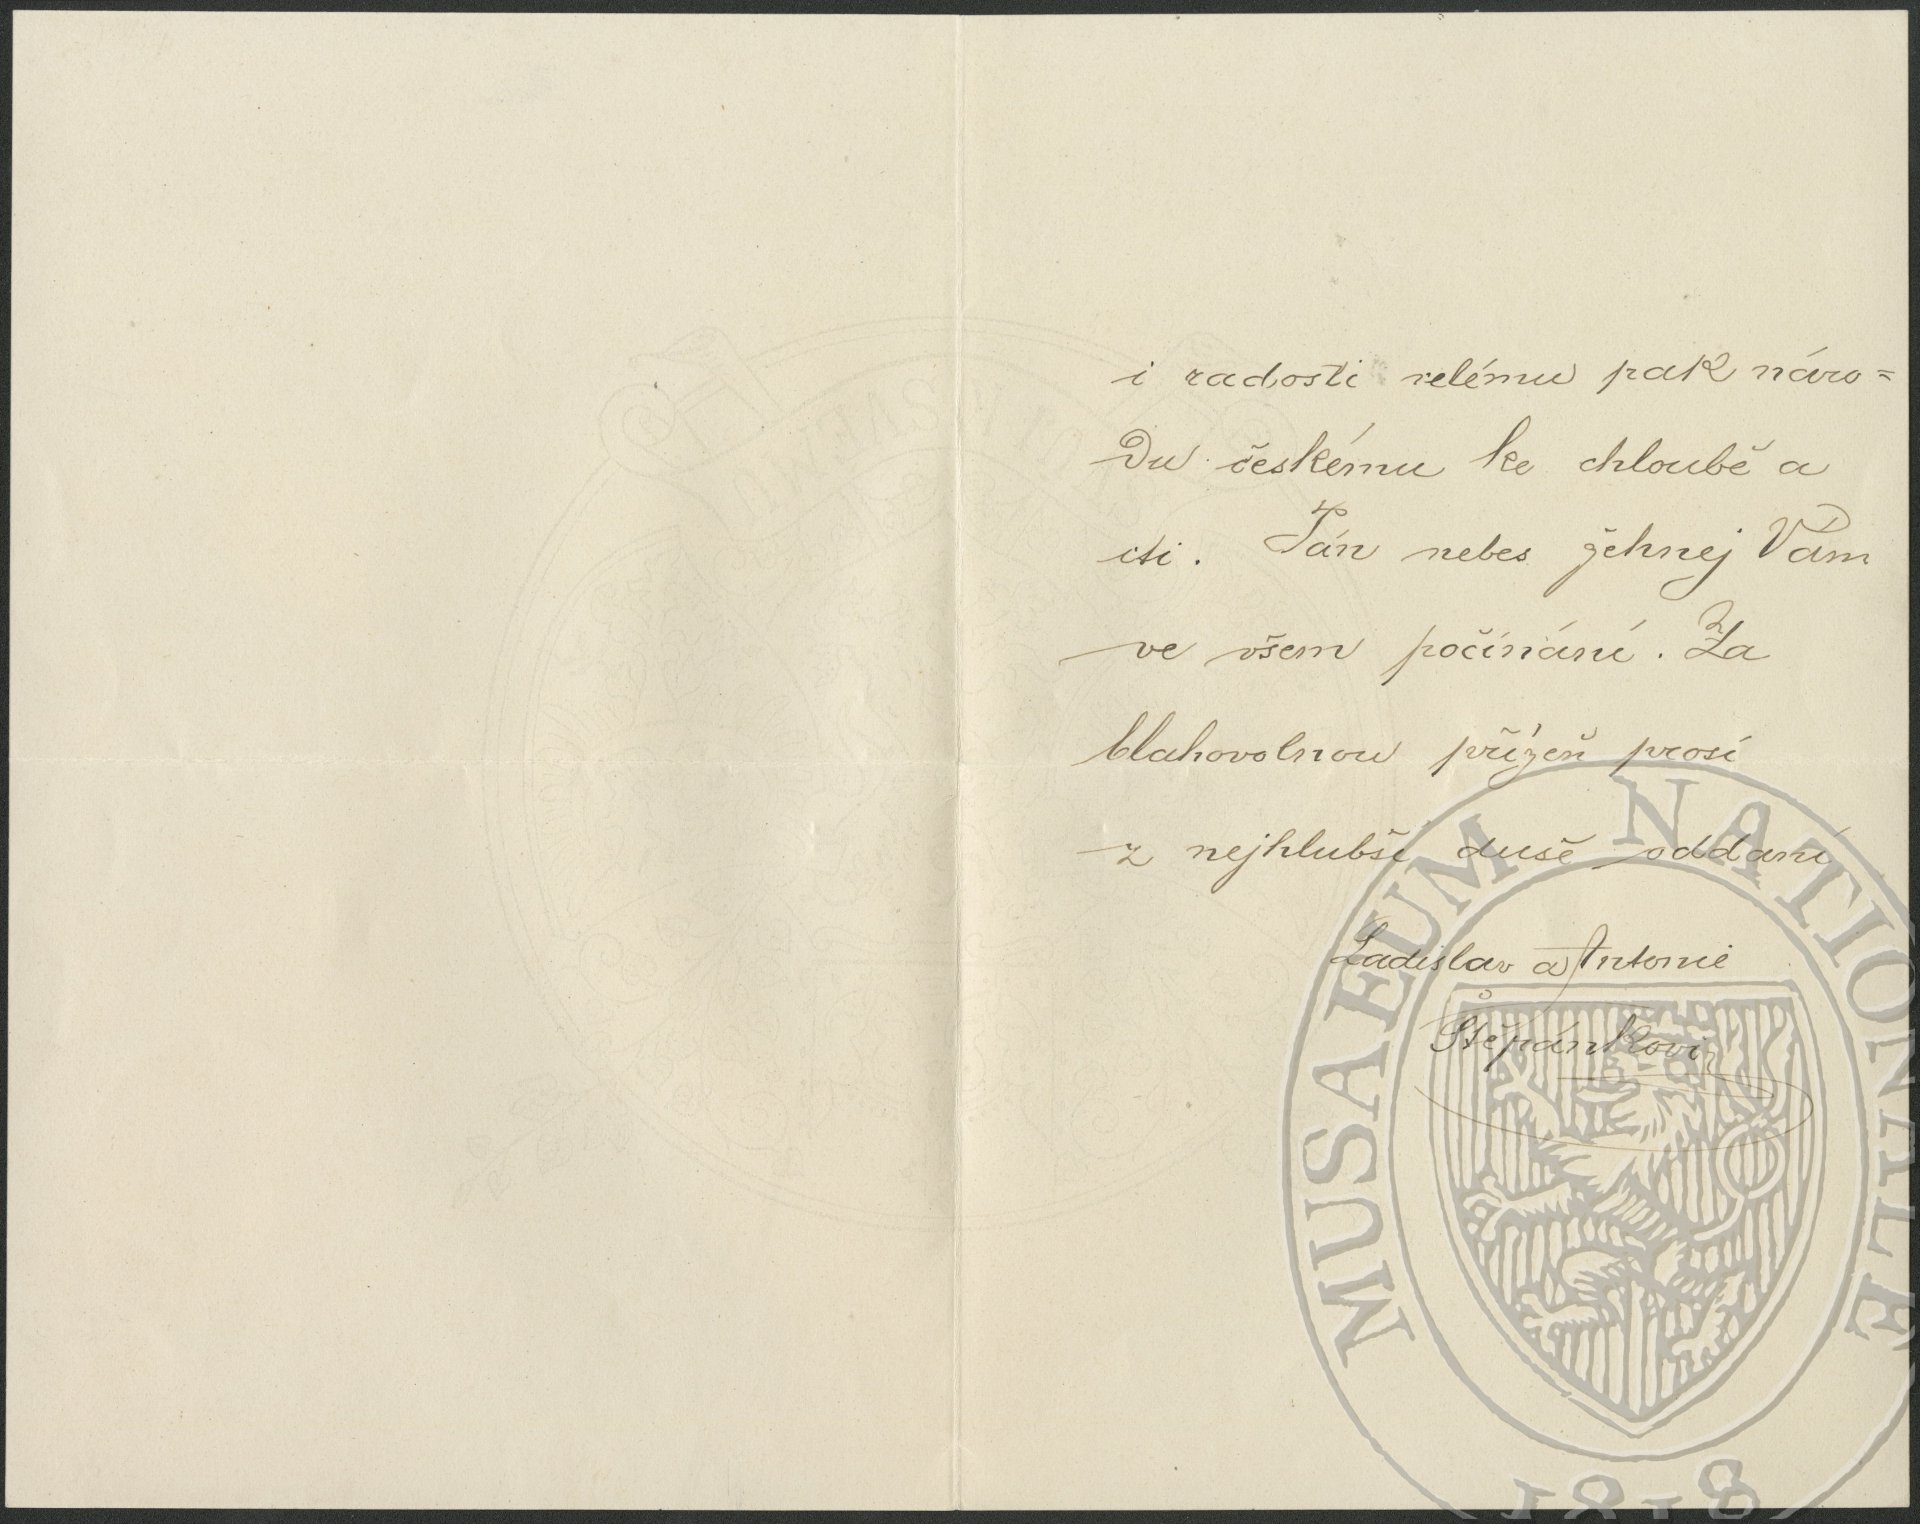 i radosti celému pak náro=
du českému ke chloubě a
cti. Pán nebes žehnej Vám
ve všem počínání. Za
blahovolnou přízeň prosí
z nejhlubší duše oddaní
Ladislav a Antonie
Štěpánkovi
MUSAEUM NATIONALE
1818